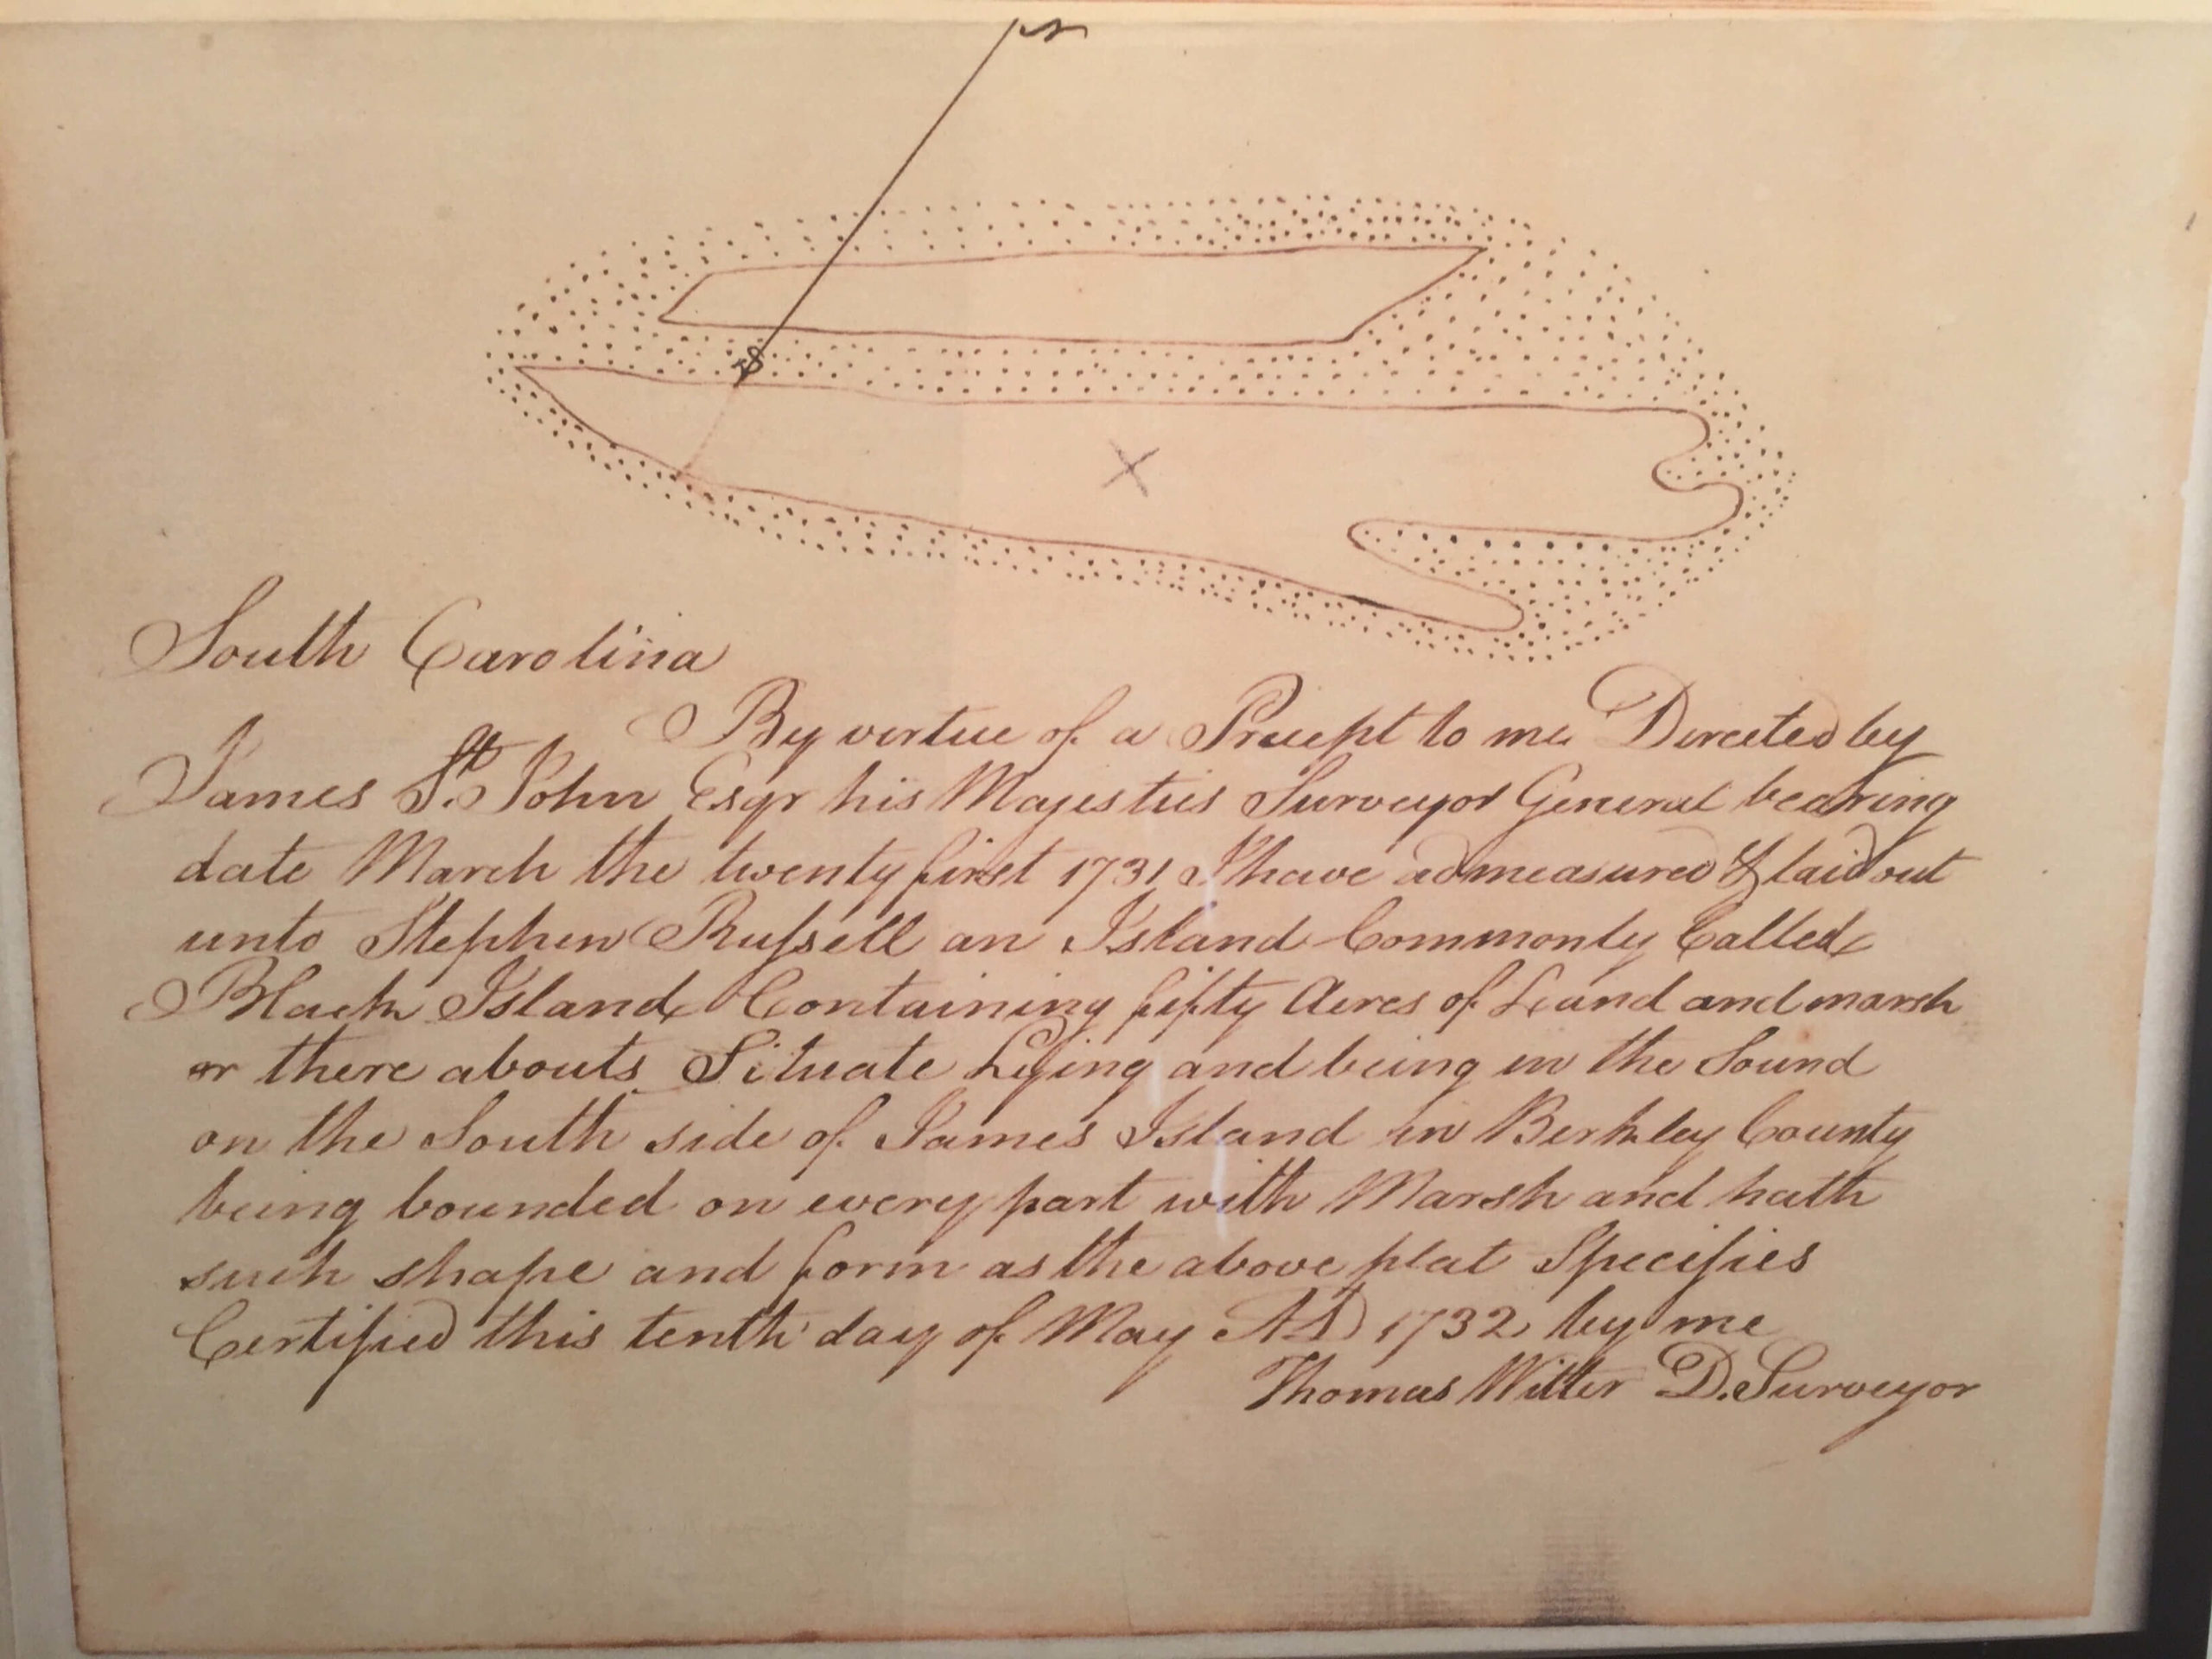 N
S
South Carolina
By virtue of a Precept to me Directed by
James St. John Esqr his Majesties Surveyor General bearing
date March the twenty first 1731 I have admeasured & laid out
unto Stephen Rufsell an Island Commonly Called
Black Island Containing fifty Acres of Land and marsh
or there abouts Situate Lying and being in the Sound
on the South side of James Island in Berkley County
being bounded on every part with Marsh and hath
such shape and form as the above plat Specifies
Certified this tenth day of May AD 1732 by me
Thomas Witter D. Surveyor